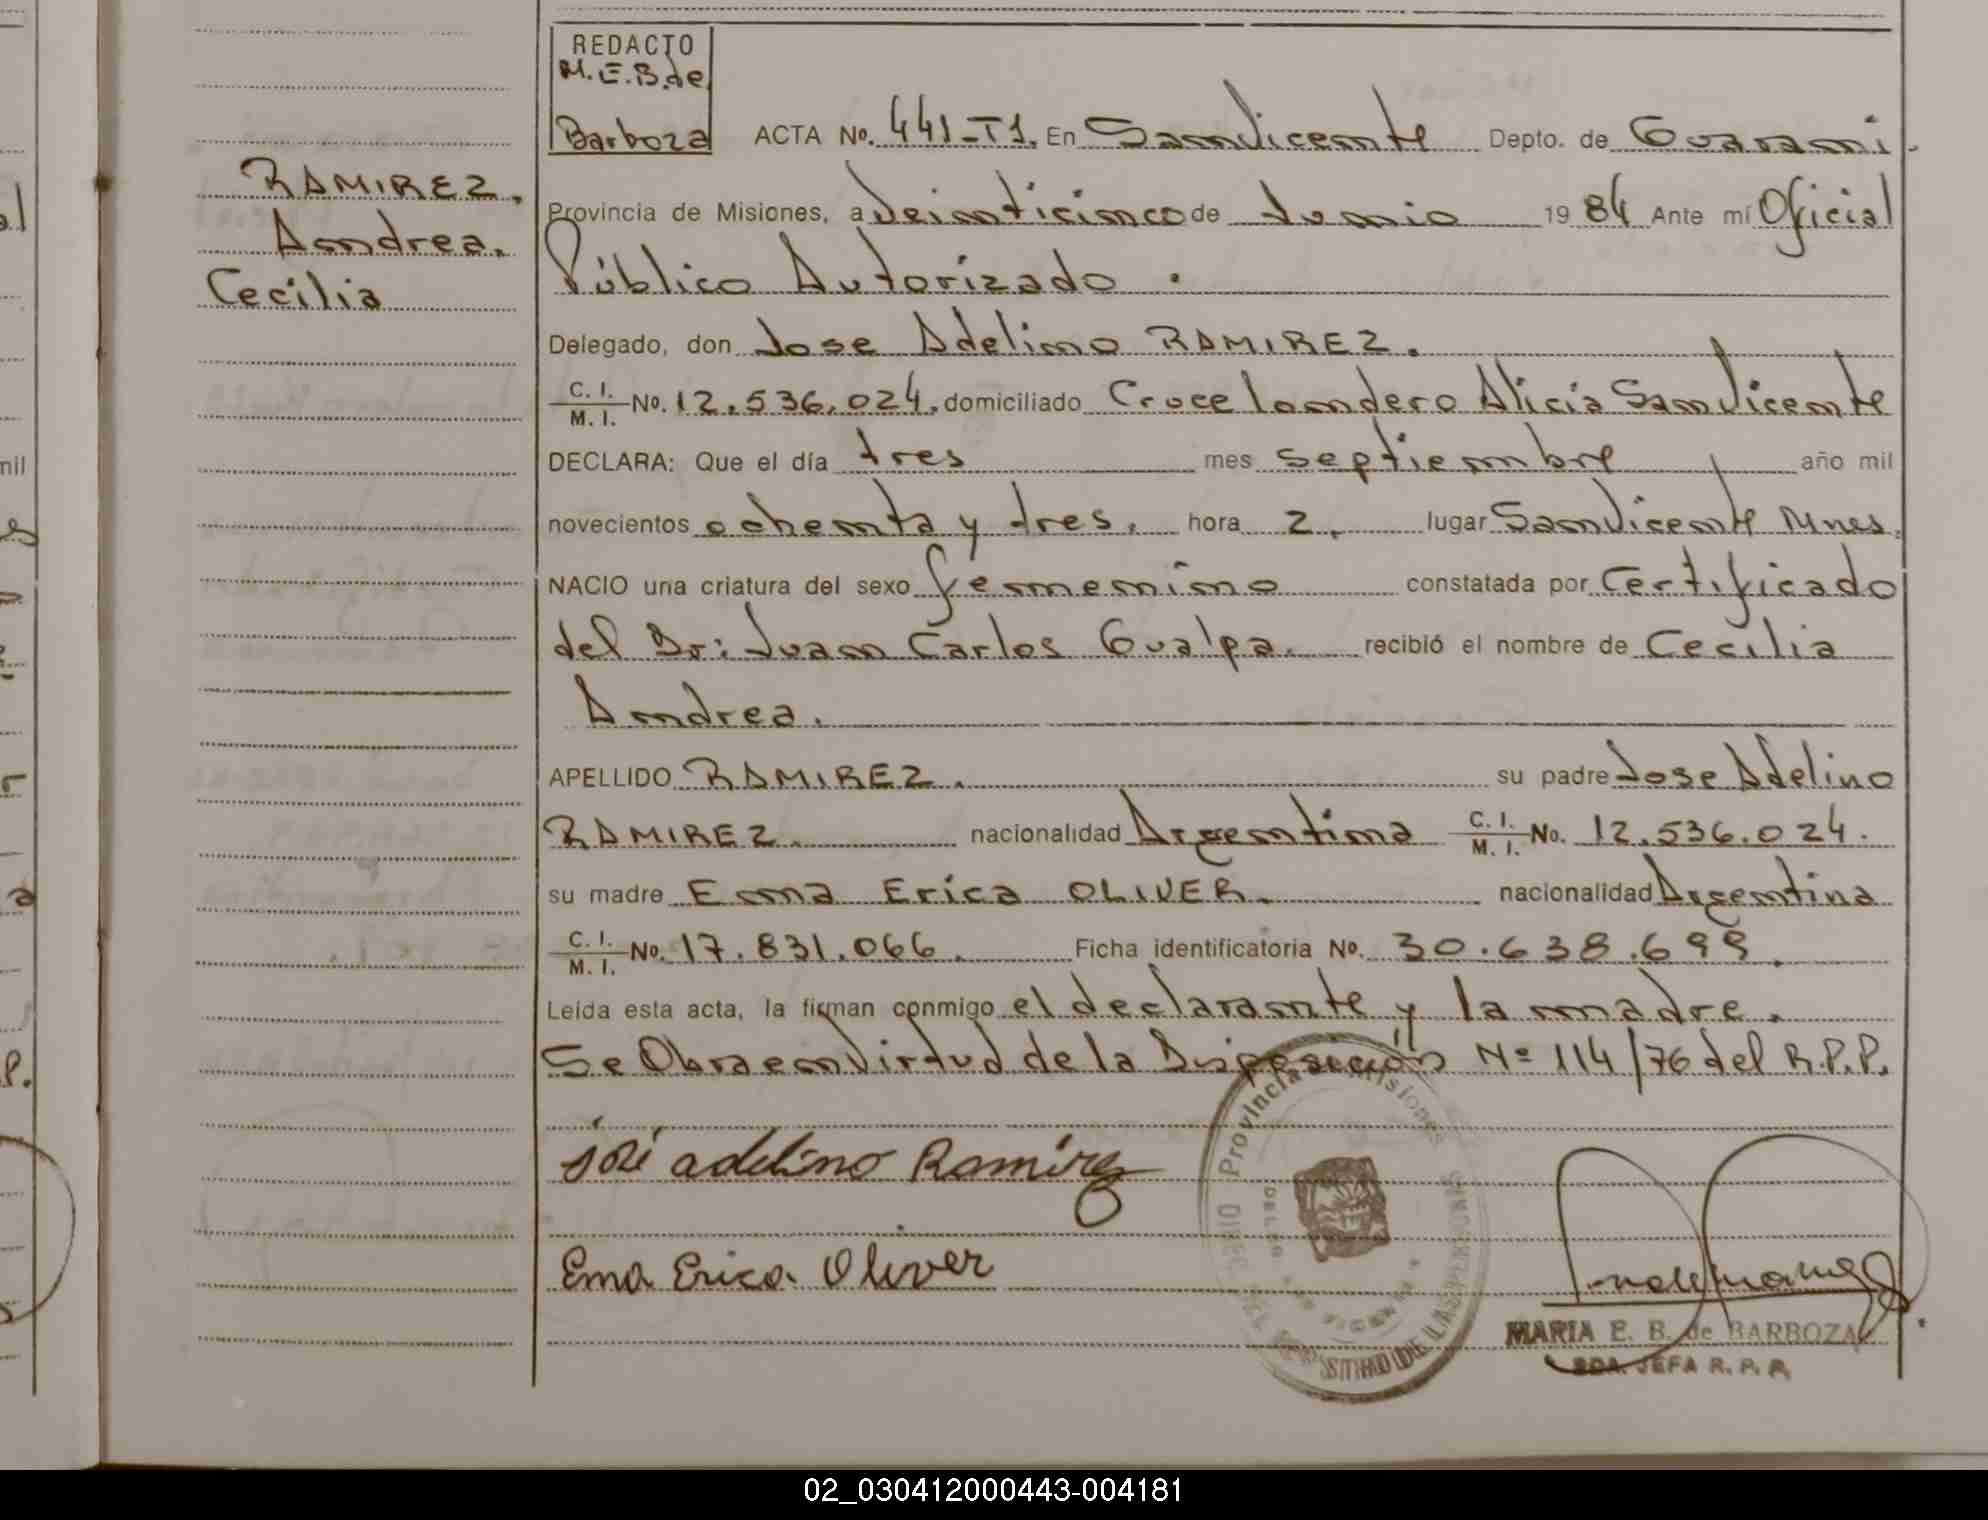 REDACTO
M.E.B.de
Barboza
ACTA No. 441-T1. En San Vicente Depto. de Guarani.
RAMIREZ.
Andrea.
Cecilia
Provincia de Misiones, a Veinticinco de Junio 19 84 Ante mí Oficial
Público Autorizado.
Delegado, don Jose Adelino RAMIREZ.
C. I.
M. I. No. 12.536.024. domiciliado Cruce Landero Alicia San Vicente
DECLARA: Que el día tres mes septiembre año mil
novecientos ochenta y tres. hora 2. lugar San Vicente Mnes.
NACIO una criatura del sexo femenino constatada por Certificado
del Dr: Juan Carlos Gualpa. recibió el nombre de Cecilia
Andrea.
APELLIDO RAMIREZ. su padre Jose Adelino
RAMIREZ. nacionalidad Argentina C. I.
M. I. No. 12.536.024.
su madre Ema Erica OLIVER. nacionalidad Argentina
C. I.
M. I. No. 17.831.066. Ficha identificatoria No. 30.638.699.
Leída esta acta, la firman conmigo el declarante y la madre.
Se Obra en Virtud de la Disposición Nº 114/76 del R.P.P.
José adelino Ramirez
Ema Erica Oliver
Provincia de Misiones
REGISTRO DE LAS PERSONAS
MARIA E. B. de BARBOZA
SDA. JEFA R. P. P.
02_030412000443-004181